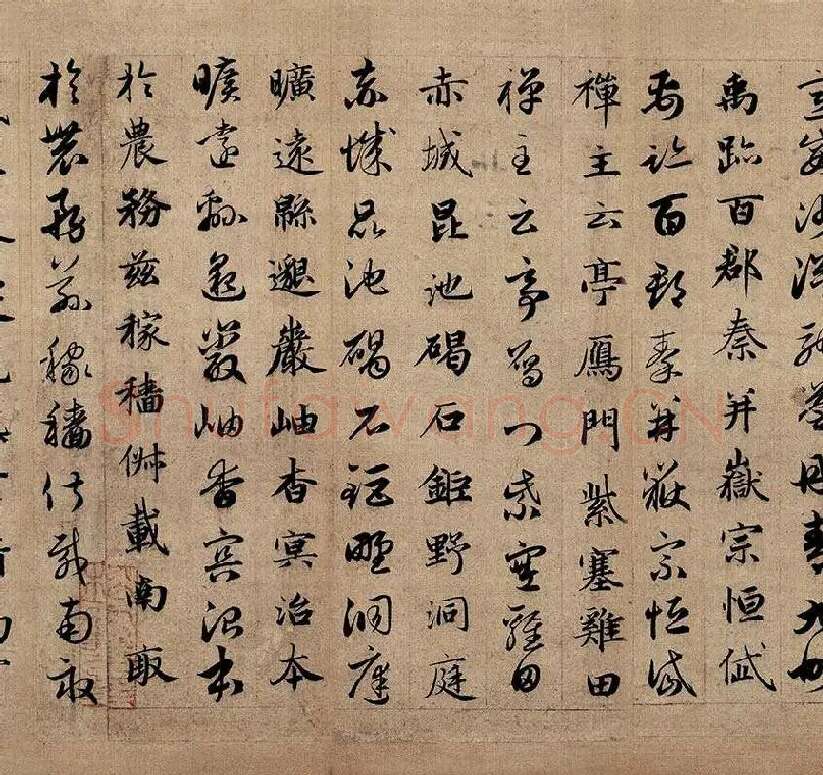 宣威沙漠馳譽丹青九州
禹跡百郡秦并嶽宗恒岱
禹跡百郡秦并嶽宗恒岱
禪主云亭鴈門紫塞雞田
禪主云亭鴈門紫塞雞田
赤城昆池碣石鉅野洞庭
赤城昆池碣石鉅野洞庭
曠遠緜邈巖岫杳冥治本
曠遠緜邈巖岫杳冥治本
於農務茲稼穡俶載南畝
於農務茲稼穡俶載南畝
Shufawang.CN